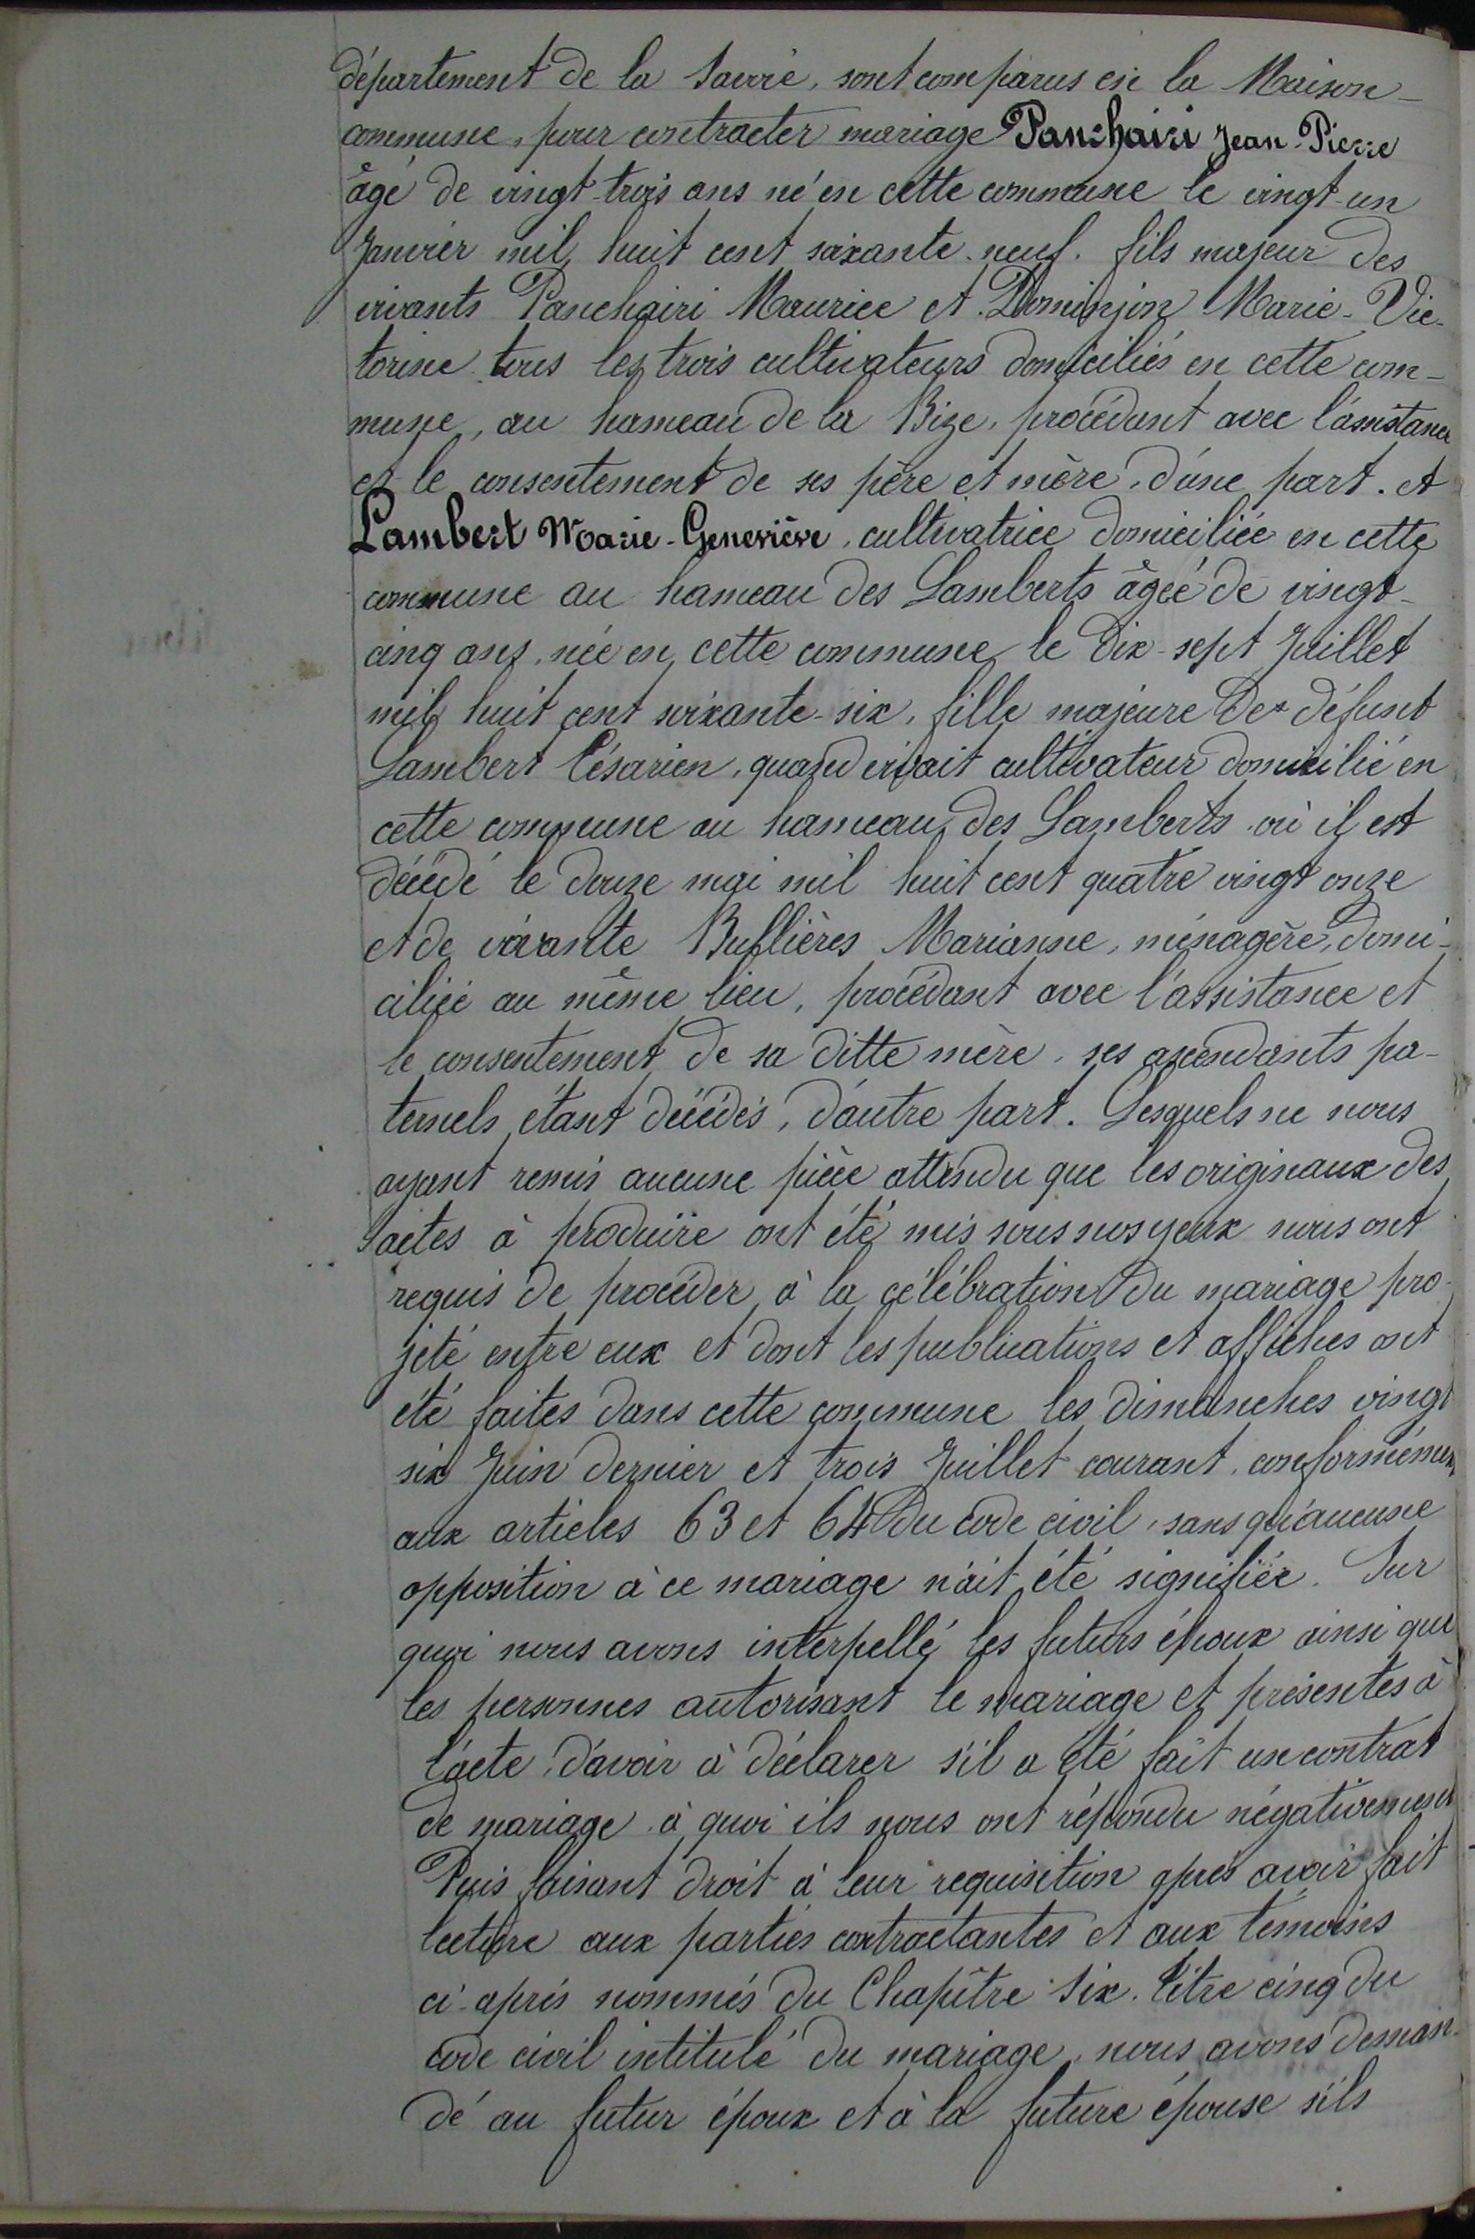 département de la Savoie, sont comparus en la Maison-
commune, pour contracter mariage Panchairi Jean-Pierre
âgé de vingt-trois ans né en cette commune le vingt-un
Janvier mil huit cent soixante-neuf. fils majeur des
vivants Panchairi Maurice et Dominjon Marie-Vic-
torine tous les trois cultivateurs domiciliés en cette com-
mune, au hameau de la Bize, procédant avec l'assistance
et le consentement de ses père et mère, d'une part. et
Lambert Marie-Geneviève, cultivatrice domiciliée en cette
commune au hameau des Lamberts âgée de vingt-
cinq ans, née en cette commune le dix-sept Juillet
mil huit cent soixante-six, fille majeure de défunt
Lambert Césarien, quand vivait cultivateur domicilié en
cette commune au hameau des Lamberts où il est
décédé le douze mai mil huit cent quatre vingt onze
et de vivante Bufflières Marianne, ménagère, domi-
ciliée au même lieu, procédant avec l'assistance et
le consentement de sa ditte mère, ses ascendants pa-
ternels étant décédés, d'autre part. Lesquels ne nous
ayant remis aucune pièce attendu que les originaux des
actes à produire ont été mis sous nos yeux nous ont
requis de procéder à la célébration du mariage pro-
jeté entre eux et dont les publications et affiches ont
été faites dans cette commune les dimanches vingt
six Juin dernier et trois Juillet courant, conformément
aux articles 63 et 64 du code civil, sans qu'aucune
opposition à ce mariage n'ait été signifiée. Sur
quoi nous avons interpellé les futurs époux ainsi que
les personnes autorisant le mariage et présentes à
l'acte, d'avoir à déclarer s'il a été fait un contrat
de mariage à quoi ils nous ont répondu négativement
Puis faisant droit à leur requisition après avoir fait
lecture aux parties contractantes et aux témoins
ci-après nommés du Chapitre Six. titre cinq du
code civil intitulé du mariage, nous avons deman-
dé au futur époux et à la future épouse s'ils